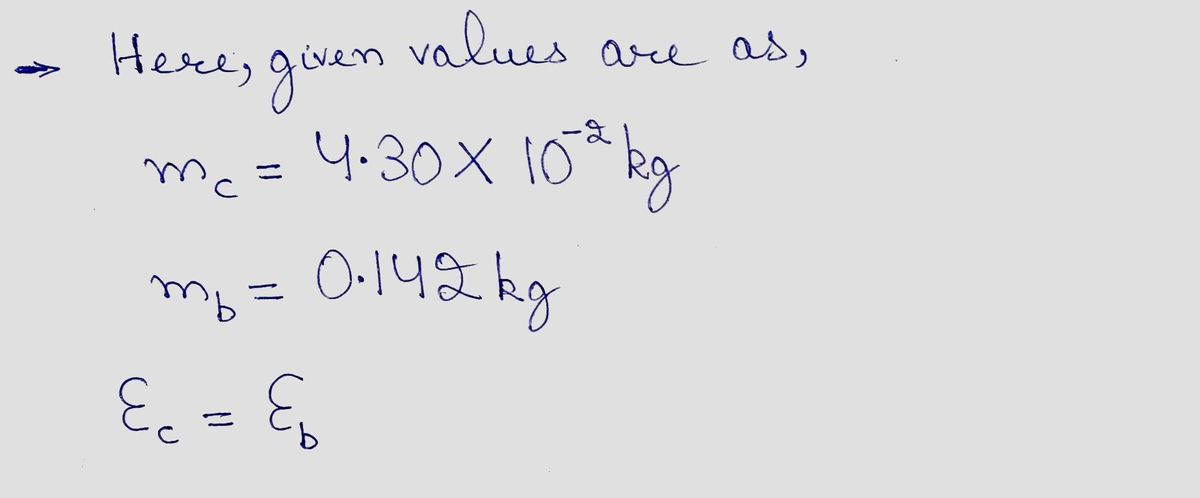 → Here, given values are as,
m_c = 4.30 × 10⁻² kg
m_b = 0.142 kg
Ɛ_c = Ɛ_b